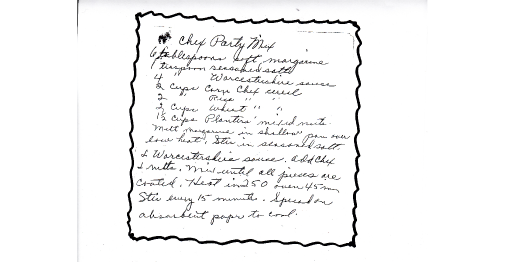 Chex Party Mix
6 tablespoons soft margarine
1 teaspoon seasoned salt
4 Worcestershire sauce
2 cups Corn Chex cereal
2 " Rice " "
2 cups Wheat " "
1½ cups Planters mixed nuts
Melt margarine in shallow pan over
low heat. Stir in seasoned salt
& Worcestershire sauce. Add Chex
& nuts. Mix until all pieces are
coated. Heat in 250 oven 45 min
Stir every 15 minutes. Spread on
absorbent paper to cool.